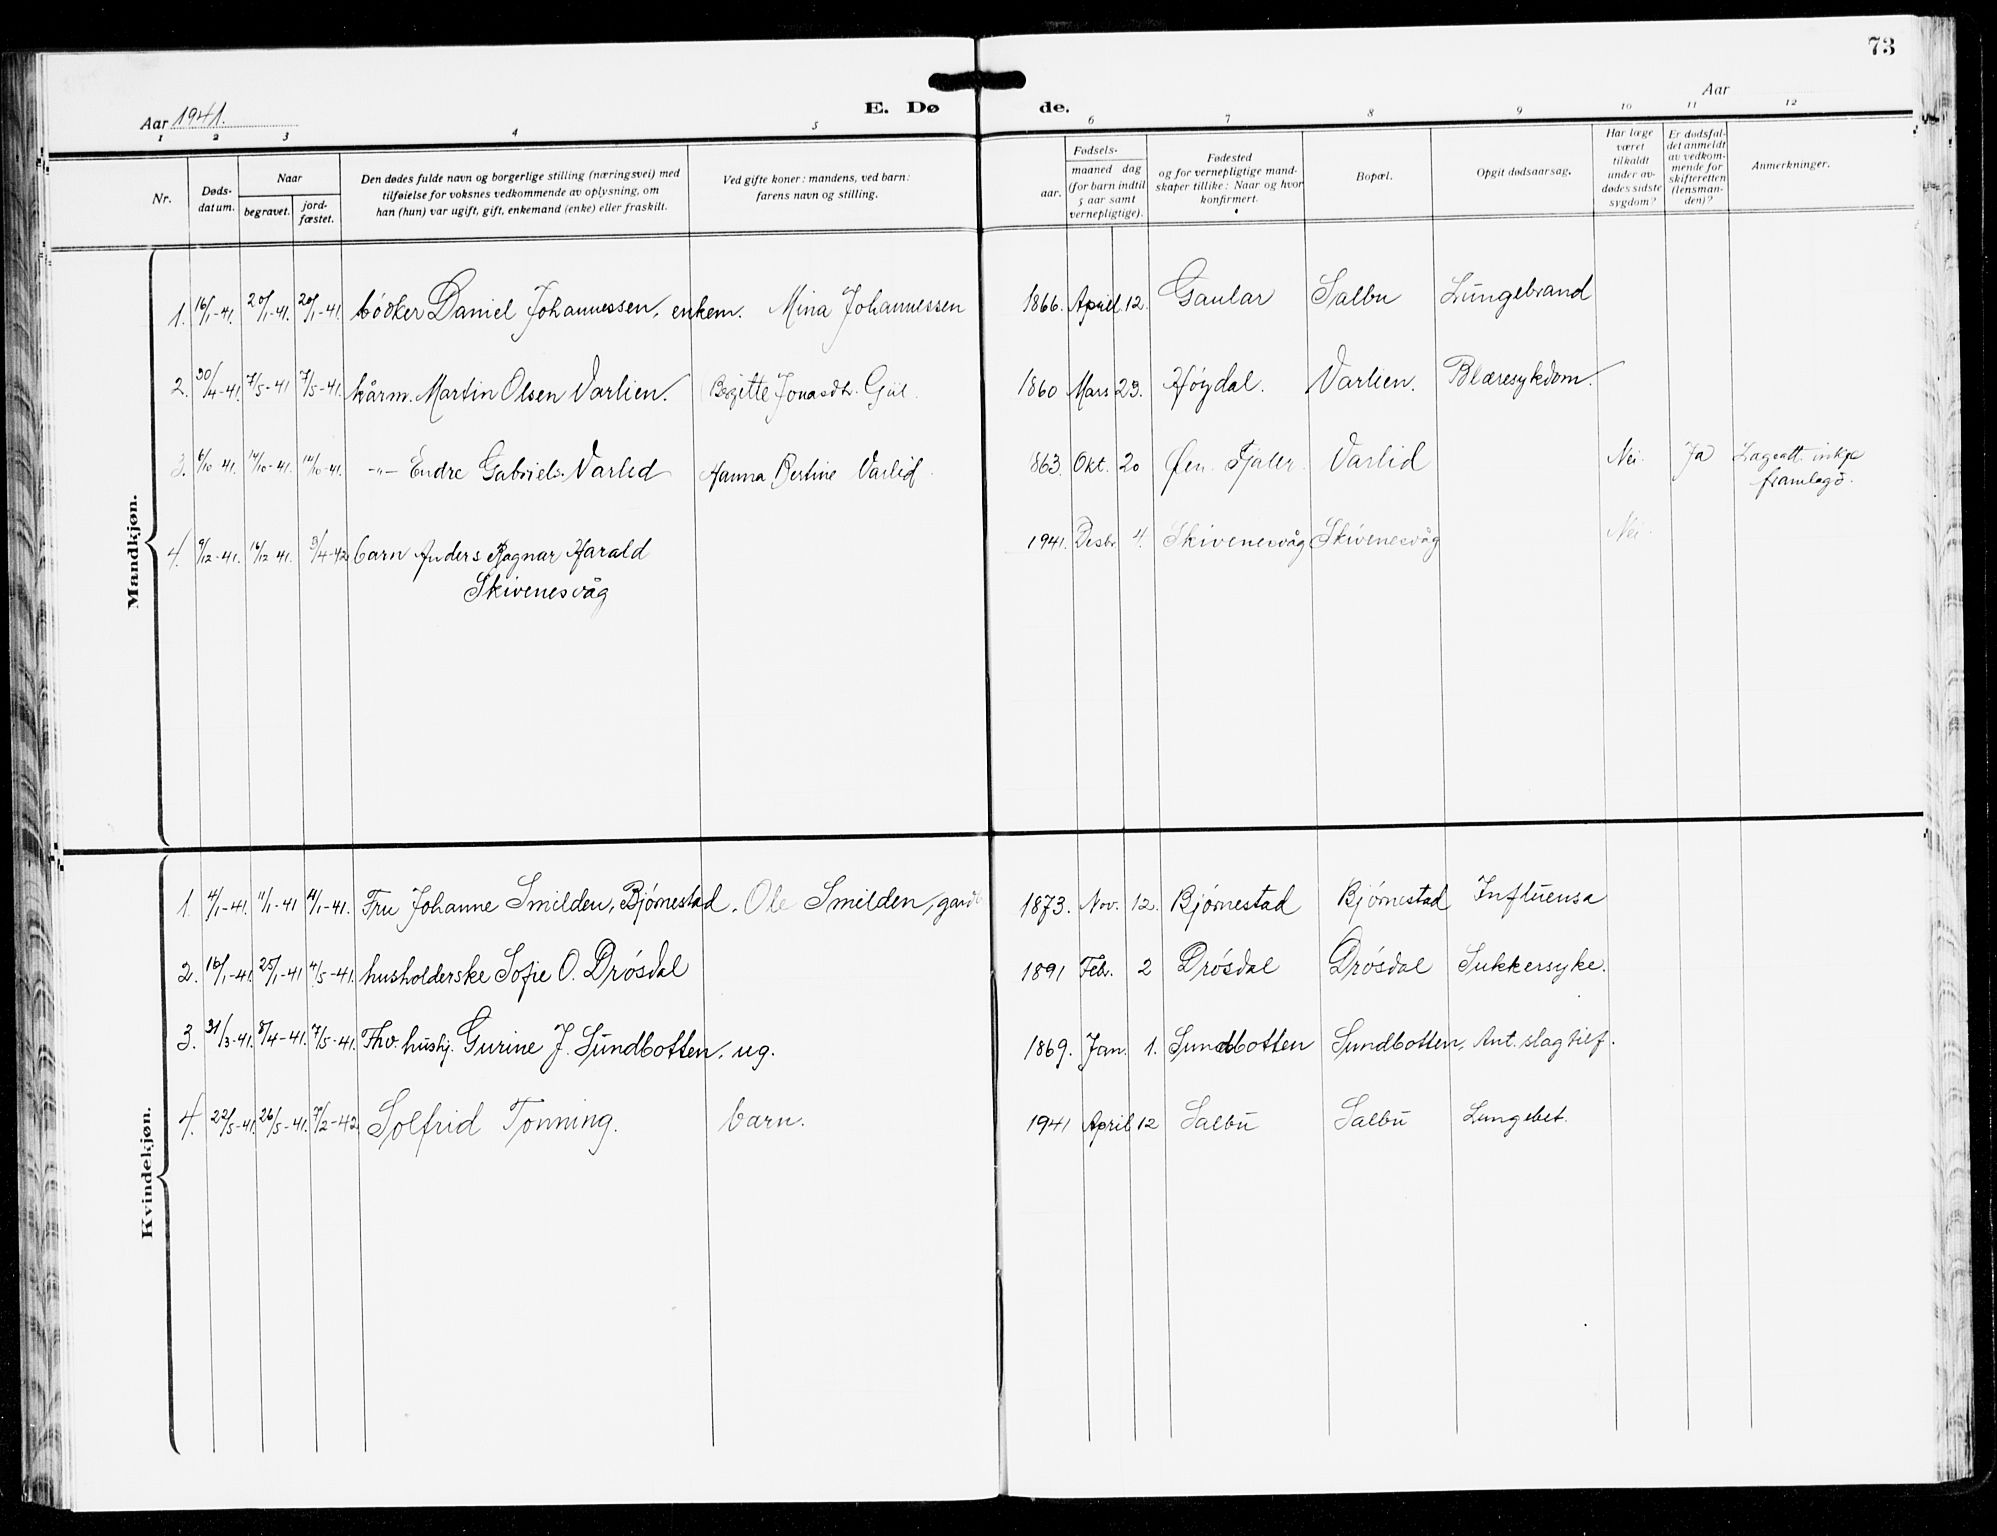 73
Aar 1941.
E. Dø de.
Aar
1 2 3 4 5 6 7 8 9 10 11 12
Nr.
Døds-
datum.
Naar
begravet.
jord-
fæstet.
Den dødes fulde navn og borgerlige stilling (næringsvei) med
tilføielse for voksnes vedkommende av oplysning, om
han (hun) var ugift, gift, enkemand (enke) eller fraskilt.
Ved gifte koner: mandens, ved barn:
farens navn og stilling.
Fødsels-
aar.
maaned dag
(for barn indtil
5 aar samt
vernepligtige).
Fødested
og for vernepligtige mand-
skaper tillike: Naar og hvor
konfirmert.
Bopæl.
Opgit dødsaarsag.
Har læge
været
tilkaldt
under av-
dødes sidste
sygdom?
Er dødsfal-
det anmeldt
av vedkom-
mende for
skifteretten
(lensman-
den)?
Anmerkninger.
Mandkjøn.
1. 16/1-41. 20/1-41. 20/1-41. bødker Daniel Johannessen, enkem. Mina Johannessen 1866. April 12. Gaular Salbu Lungebrand
2. 30/4-41. 7/5-41 7/5-41. kårm. Martin Olsen Varlien. Jonasdtr. 1860 Mars 23. Høydal. Varlien. Blæresykdom.
3. 6/10 41. 14/10-41. 14/10-41. -"- Endre Gabriels. Varlid Hanna Bertine Varlid. 863. Okt. 20 Fjaler Varlid Nei. Ja
framlagd.
4. 9/12-41. 16/12 41. 3/4-42 barn Anders Ragnar Harald 1941. Desbr 4. Skivenesvåg Skivenesvåg Nei.
Skivenesvåg
Kvindekjøn.
1. 4/1-41. 11/1-41 11/1-41. Fru Johanne Smilden, Bjørnestad. Ole Smilden, gardb 1873. Nov. 12. Bjørnestad Bjørnestad Influensa
2. 16/1-41. 25/1-41 4/5-41. husholderske Sofie O. Drøsdal 1891 Feb. 2 Drøsdal Drøsdal Sukkersyke.
3. 31/3-41. 8/4-41. 7/5-41. Fhv. hushj. Gurine J. Sundbotten, ug. 1869. Jan. 1. Sundbotten Sundbotten,
4. 22/5-41. 26/5-41. 7/2-42 Solfrid Tonning. barn. 1941 April 12 Salbu Salbu Lungebet.